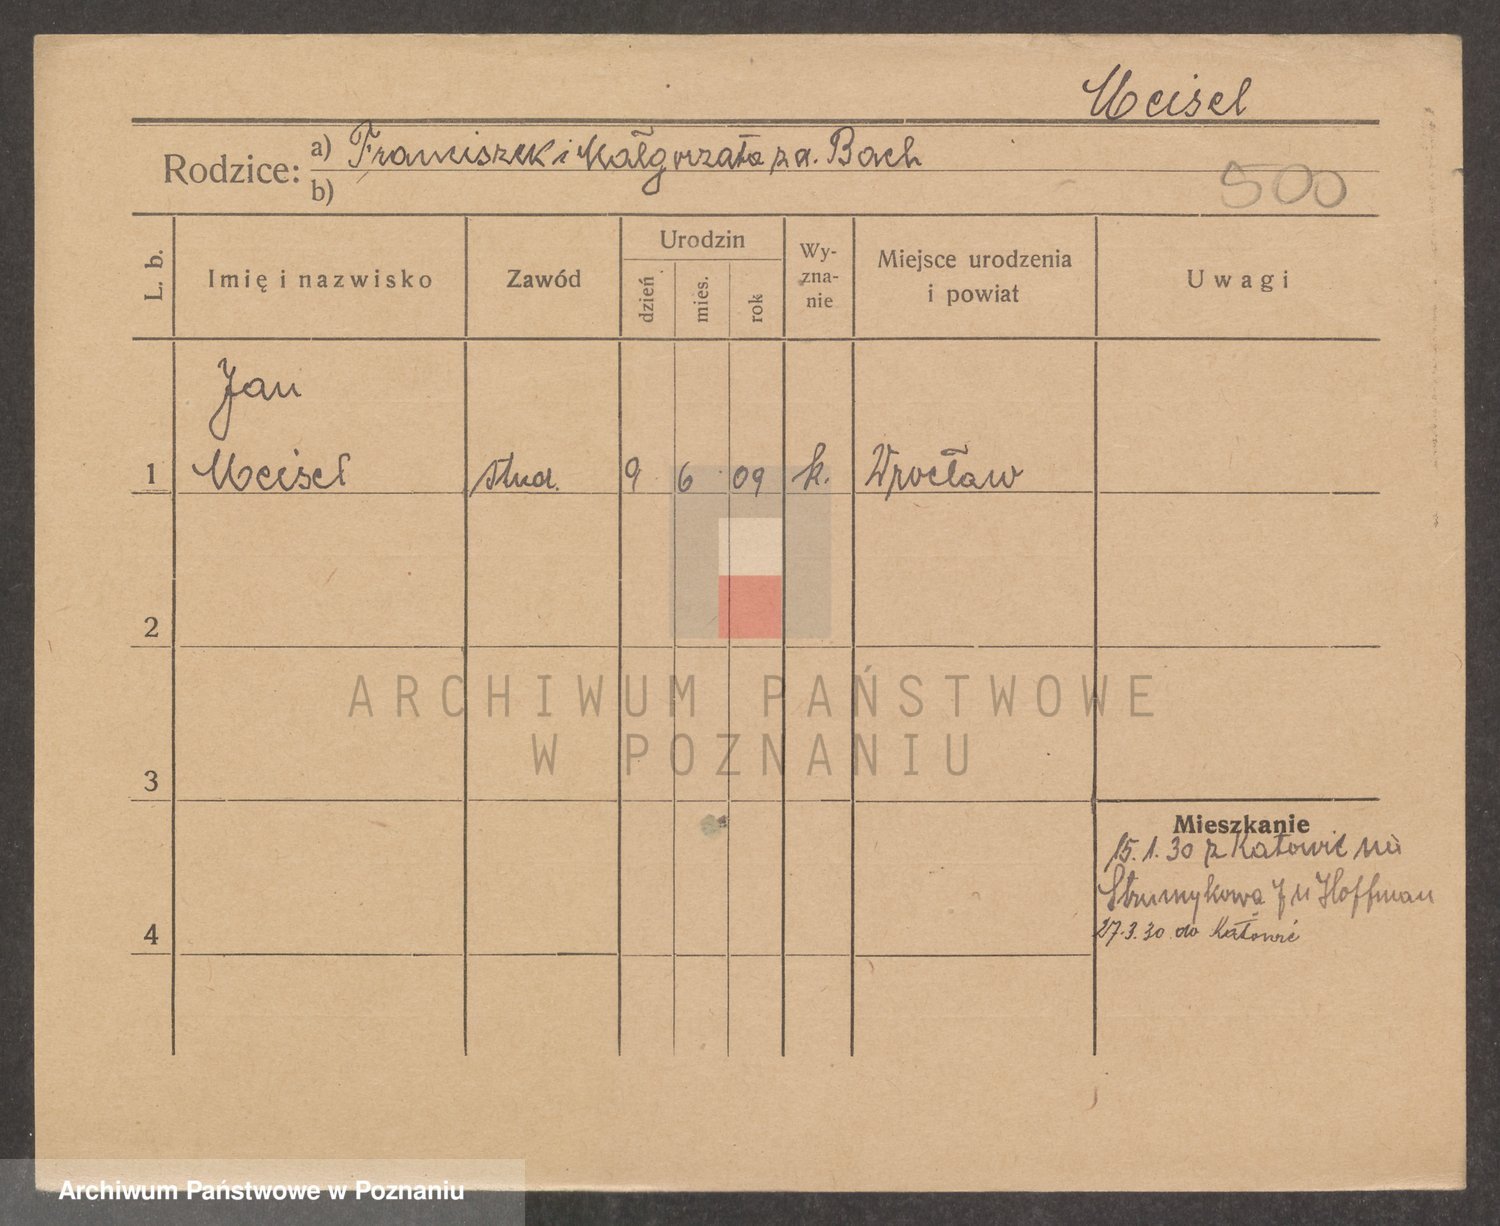 Meisel
Rodzice: a) Franciszek i Małgorzata z d. Bach
b)
500
L. b.
Imię i nazwisko
Zawód
Urodzin
dzień
mies.
rok
Wy-
zna-
nie
Miejsce urodzenia
i powiat
Uwagi
Jan
1 Meisel stud. 9 6 09 k. Wrocław
2
ARCHIWUM PAŃSTWOWE
W POZNANIU
3
Mieszkanie
15.1.30 z Katowic na
Strumykowa 7 u Hoffman
27.3.30 do Katowic
4
Archiwum Państwowe w Poznaniu